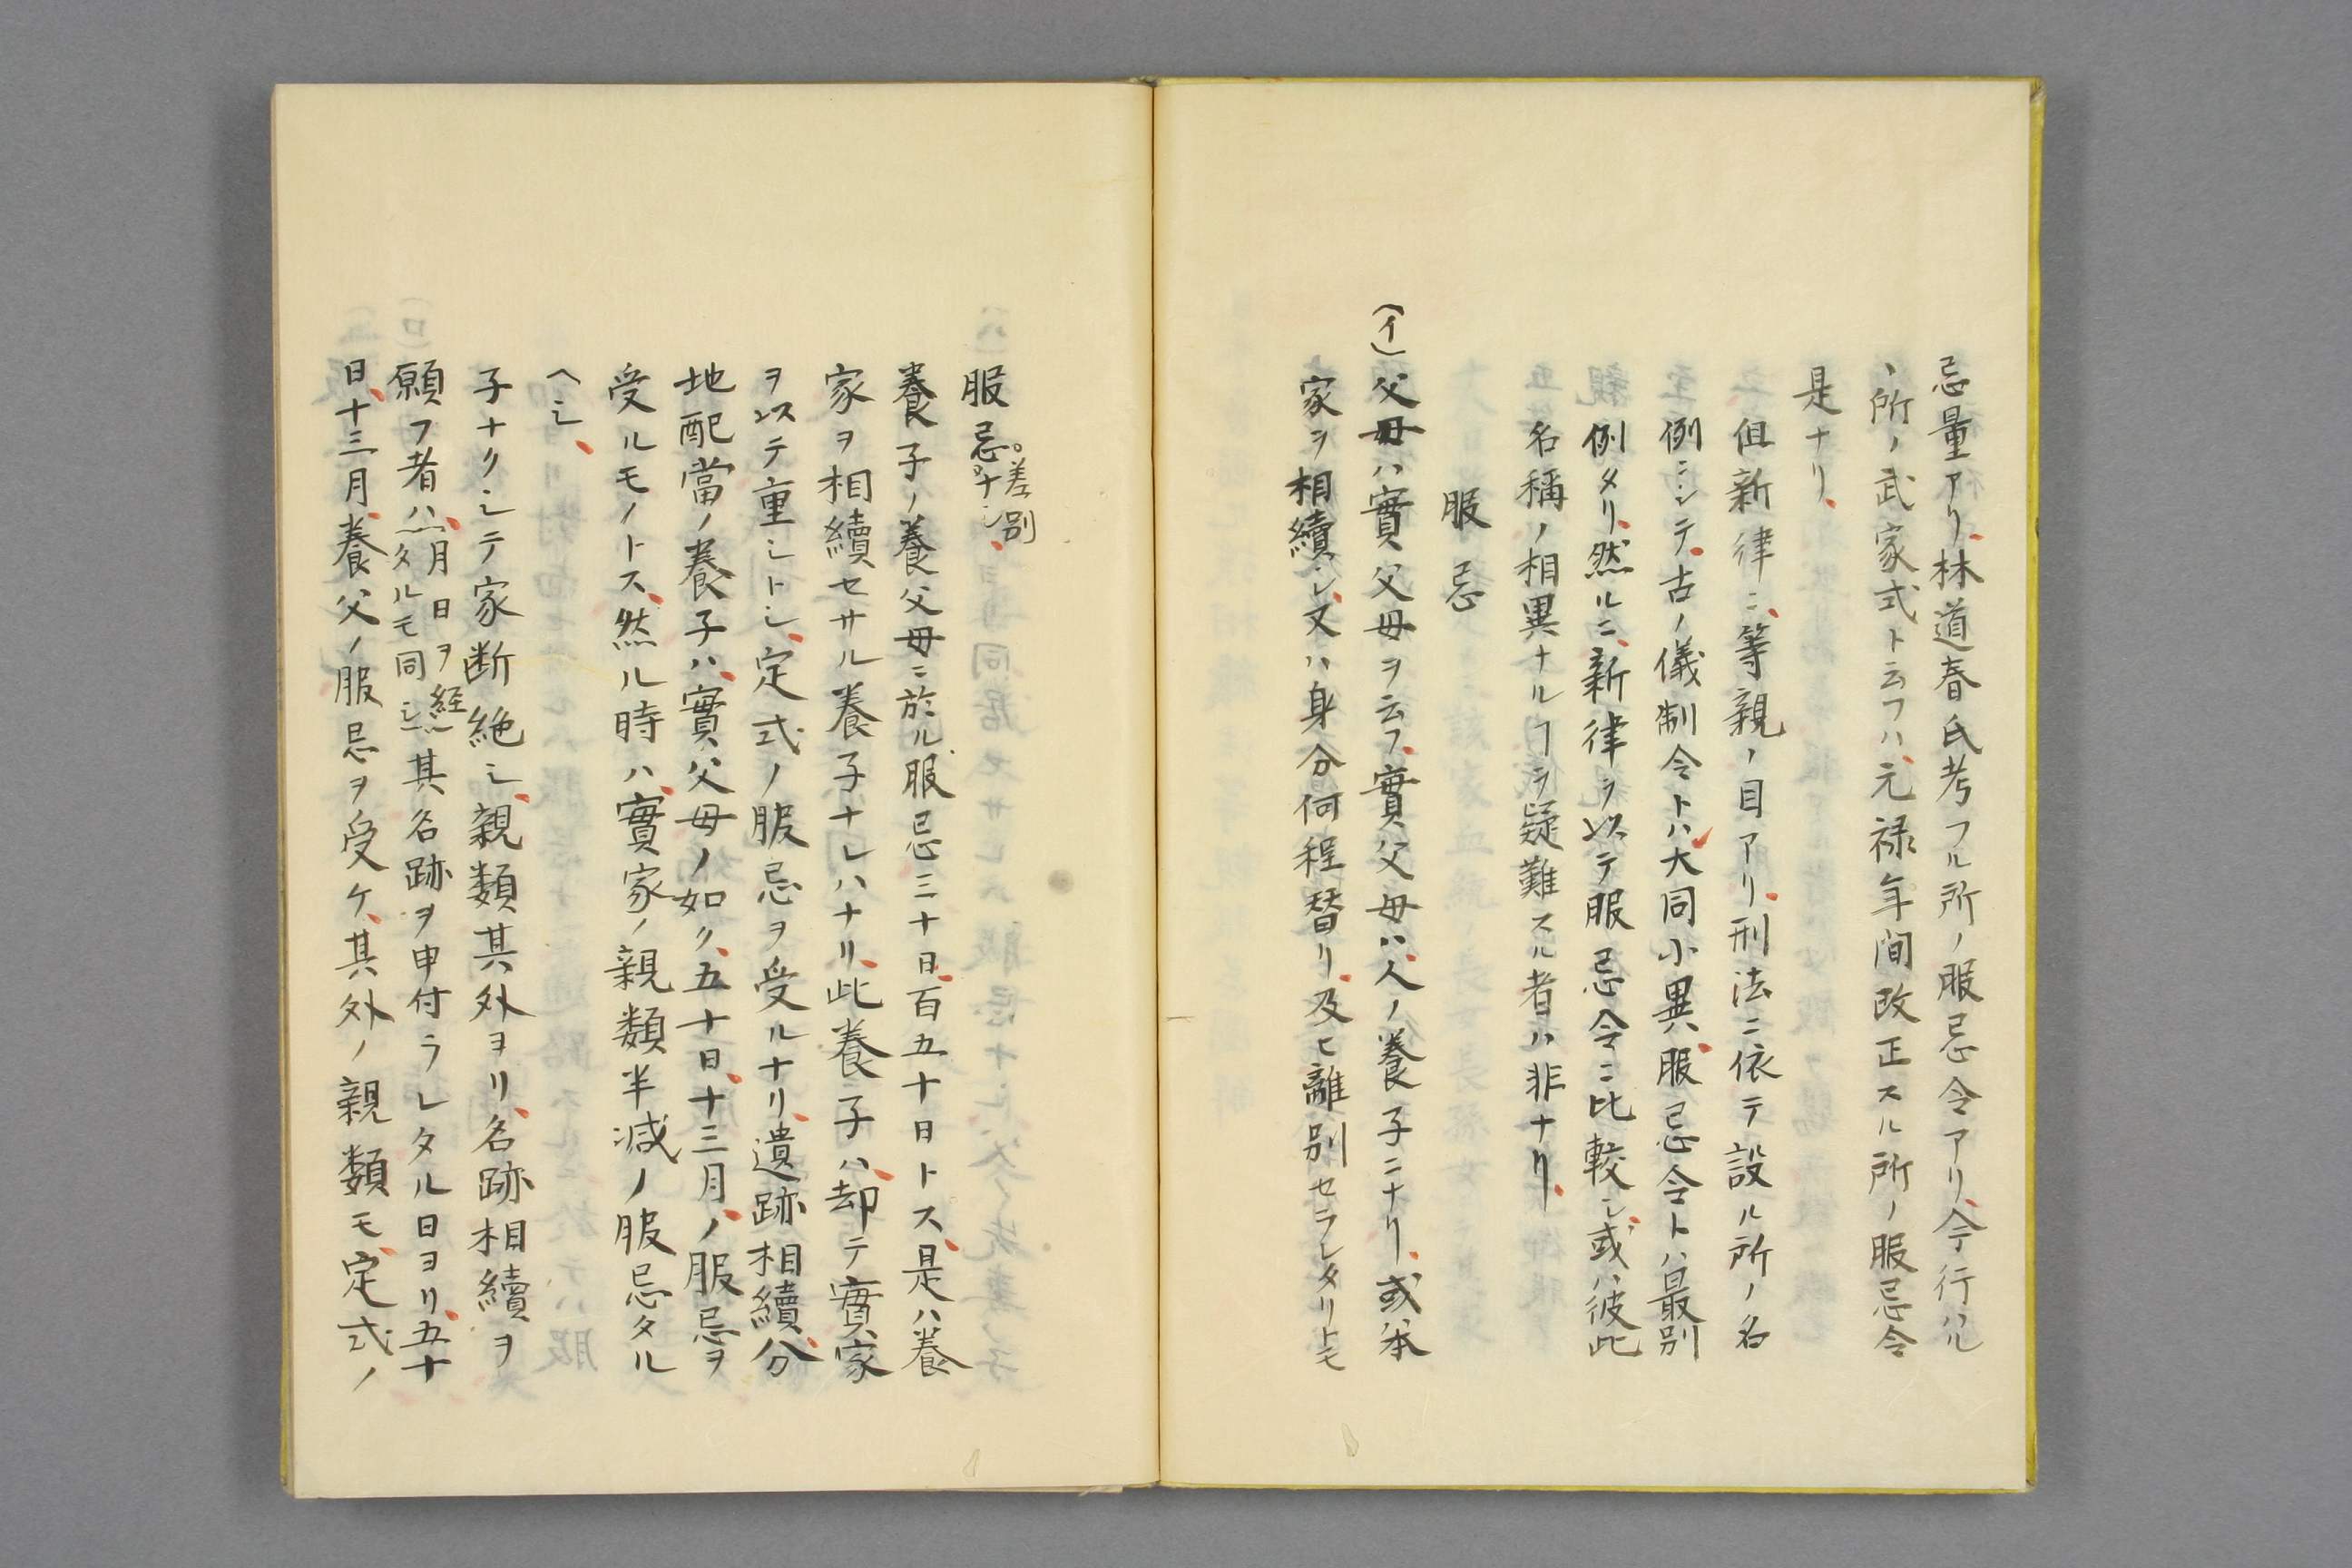 忌量アリ、林道春氏考フル所ノ服忌令アリ、今行ハル
ヽ所ノ武家式ト云フハ、元禄年間改正スル所ノ服忌令
是ナリ、
但新律ニ、等親ノ目アリ、刑法ニ依テ設ル所ノ名
例ニシテ、古ノ儀制令トハ大同小異、服忌令トハ最別
例タリ、然ルニ、新律ヲ以テ服忌令ニ比較シ、或ハ彼此
名稱ノ相異ナルヿヲ疑難スル者ハ非ナリ、
服忌
(イ)父母ハ實父母ヲ云フ、實父母ハ、人ノ養子ニナリ、或ハ本
家ヲ相續シ、又ハ身分何程替リ、及ヒ離別セラレタリトモ
服忌。差別ナシ、
養子ノ養父母ニ於ル、服忌三十日、百五十日トス、是ハ養
家ヲ相續セサル養子ナレハナリ、此養子ハ、却テ實家
ヲ以テ重シトシ、定式ノ服忌ヲ受ルナリ、遺跡相續、分
地配當ノ養子ハ、實父母ノ如ク、五十日、十三月、ノ服忌ヲ
受ルモノトス、然ル時ハ、實家ノ親類半減ノ服忌タル
ヘシ、
子ナクシテ家断絶シ、親類其外ヨリ、名跡相續ヲ
願フ者ハ、月日ヲ経タルモ同シ其名跡ヲ申付ラレタル日ヨリ、五十
日、十三月、養父ノ服忌ヲ受ケ、其外ノ親類モ、定式ノ